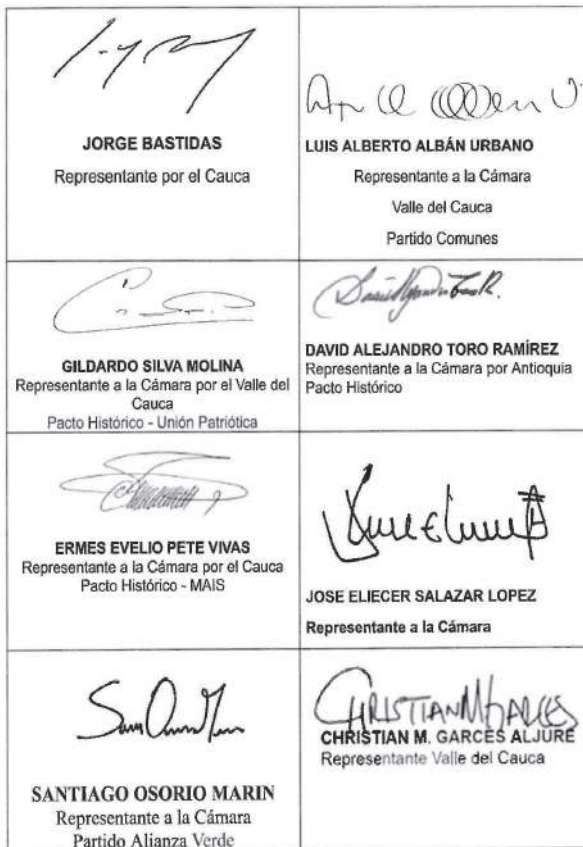 JORGE BASTIDAS
Representante por el Cauca
LUIS ALBERTO ALBÁN URBANO
Representante a la Cámara
Valle del Cauca
Partido Comunes
GILDARDO SILVA MOLINA
Representante a la Cámara por el Valle del
Cauca
Pacto Histórico - Unión Patriótica
DAVID ALEJANDRO TORO RAMÍREZ
Representante a la Cámara por Antioquia
Pacto Histórico
ERMES EVELIO PETE VIVAS
Representante a la Cámara por el Cauca
Pacto Histórico - MAIS
JOSE ELIECER SALAZAR LOPEZ
Representante a la Cámara
SANTIAGO OSORIO MARIN
Representante a la Cámara
Partido Alianza Verde
CHRISTIAN M GARCES
CHRISTIAN M. GARCÉS ALJURE
Representante Valle del Cauca